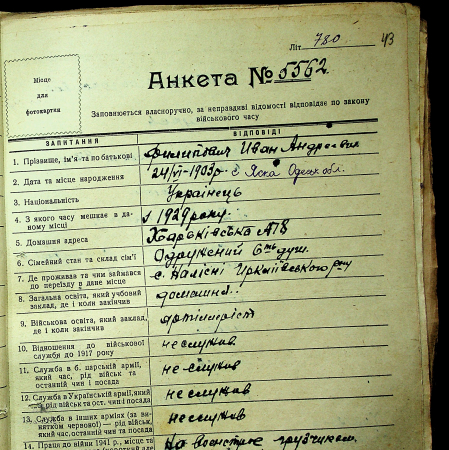 Літ 780
43
Місце
для
фотокартки
Анкета № 5562
Заповнюється власноручно, за неправдиві відомості відповідає по закону
військового часу
ЗАПИТАННЯ
ВІДПОВІДІ
1. Прізвище, ім'я та по батькові
Филипович Иван Андреевич
2. Дата та місце народження
24/VI-1903р. с Яска Одеськ обл.
3. Національність
Українець
4. З якого часу мешкає в да-
ному місці
з 1929 року.
5. Домашня адреса
Харьківська №8
6. Сімейний стан та склад сім'ї
Одружений 6ть душ.
7. Де проживав та чим займався
до переїзду в дане місце
с.
8. Загальна освіта, який учбовий
заклад, де і коли закінчив
домашня.
9. Військова освіта, який заклад,
де і коли закінчив
артілерист
10. Відношення до військової
служби до 1917 року
неслужив
11. Служба в б. царській армії,
який час, рід військ та
останній чин і посада
не-служив
12. Служба в Українській армії, який
час, рід військ та ост. чин і посада
неслужив
13. Служба в інших арміях (за ви-
нятком червоної) — рід військ,
який час, останній чин та посада
неслужив
14. Праця до війни 1941 р., місце та
грузчиком